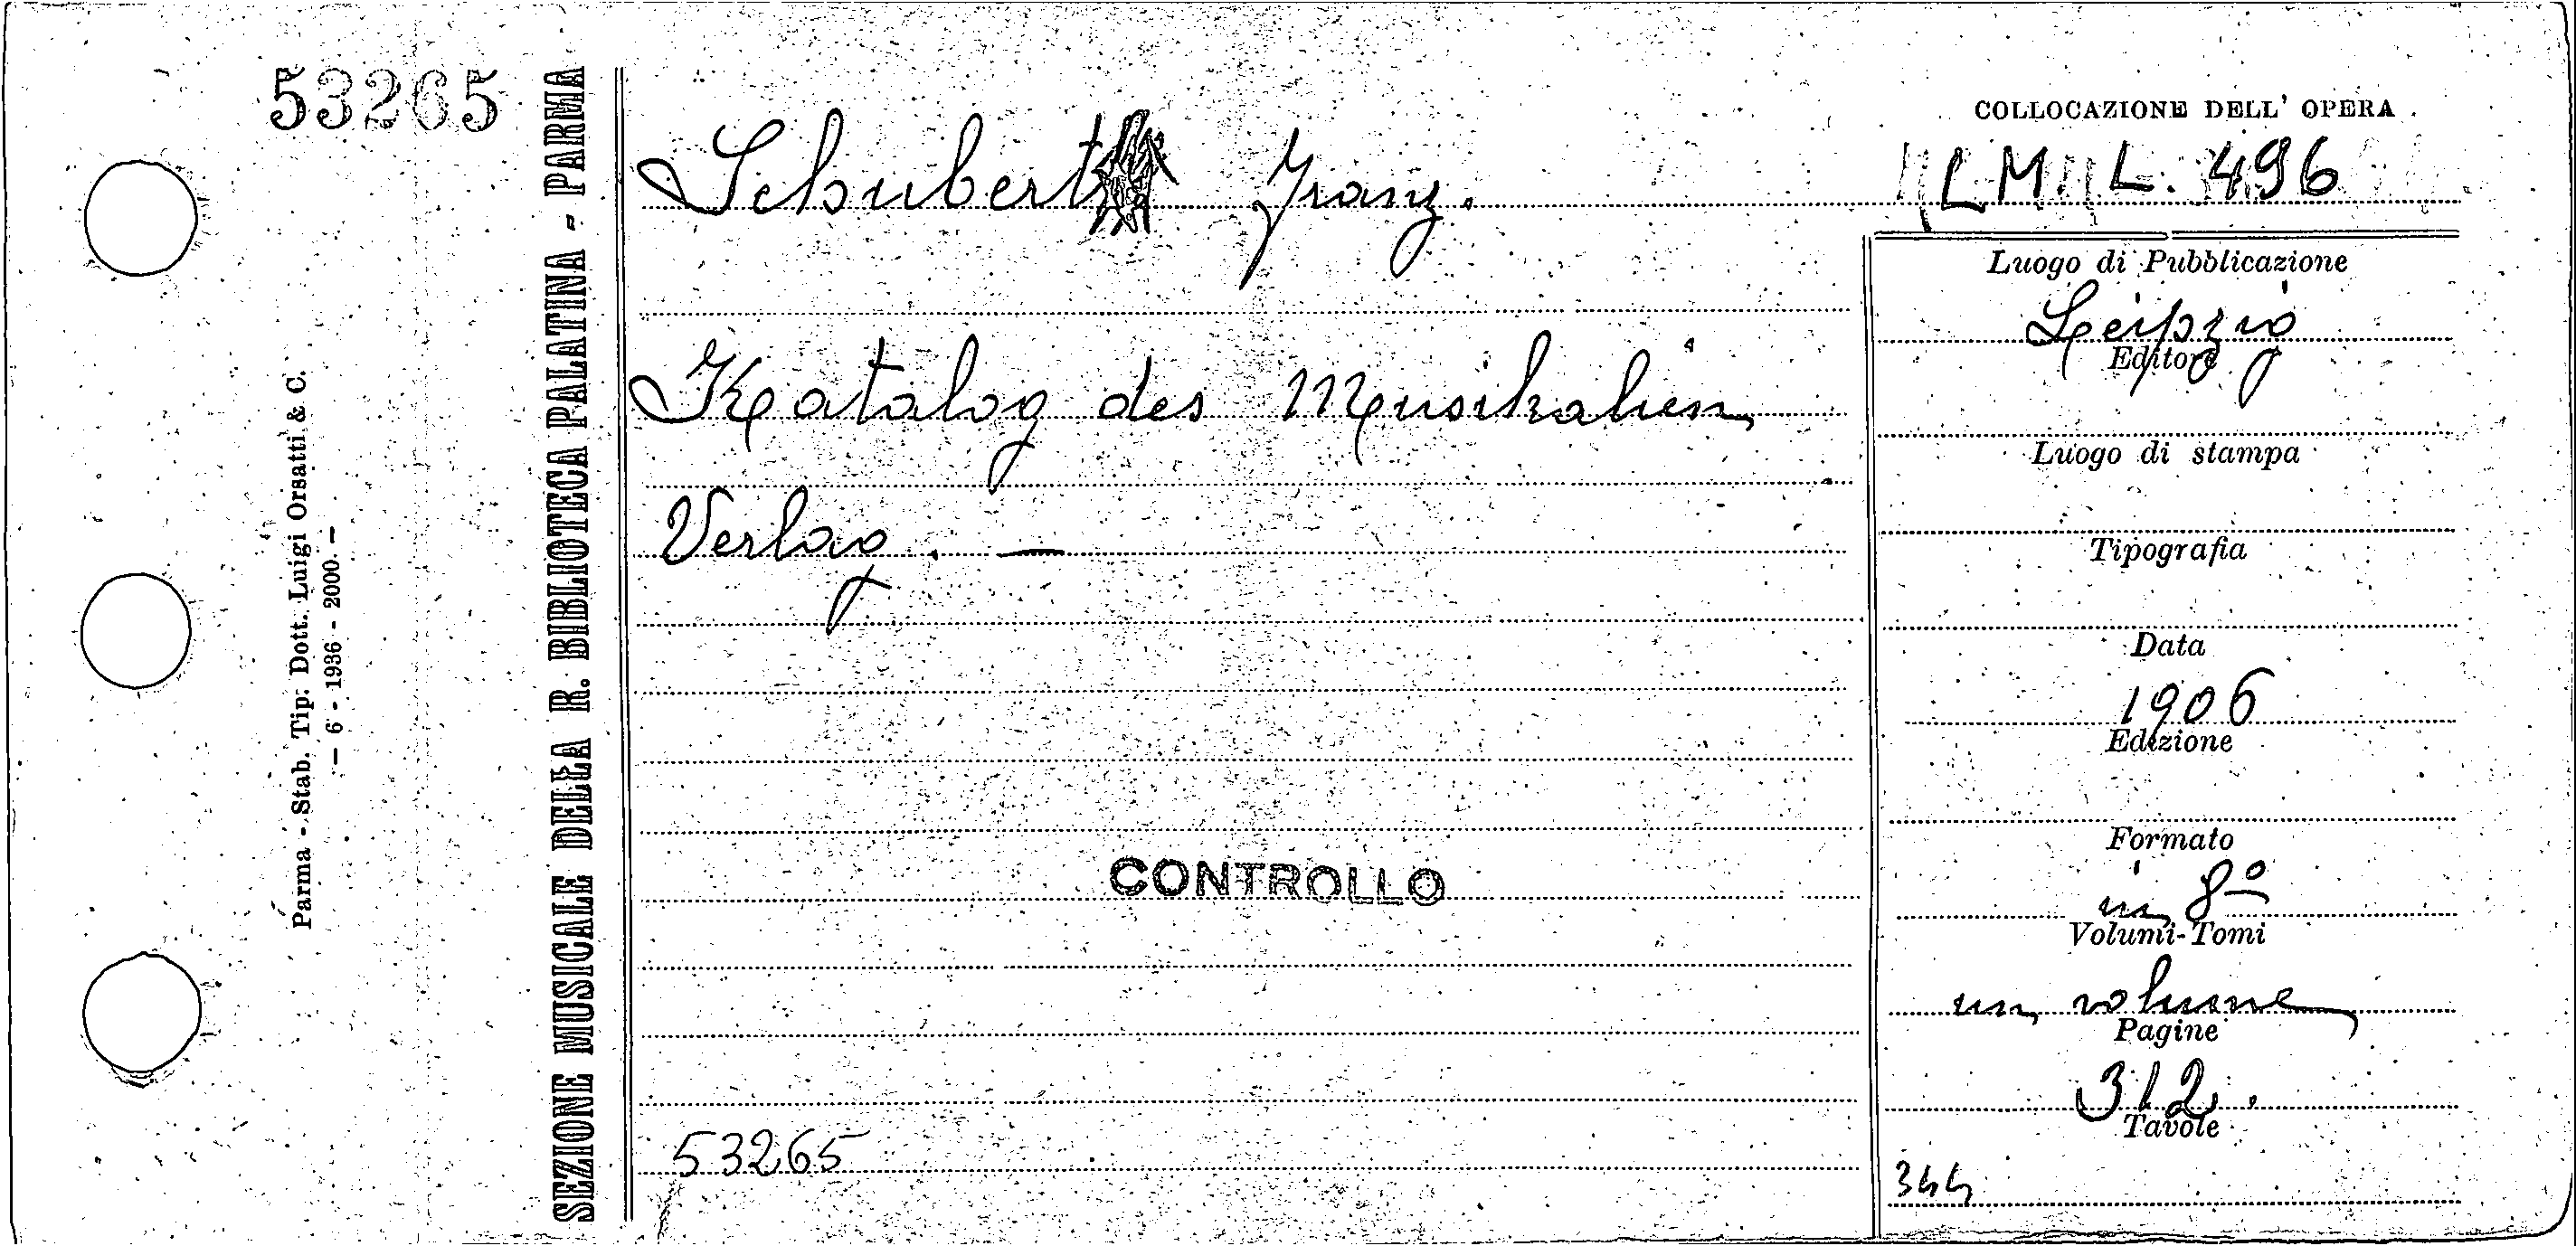 53265
Parma - Stab. Tip. Dott. Luigi Orsatti & C.
— 6 - 1936 - 2000. —
SEZIONE MUSICALE DELLA R. BIBLIOTECA PALATINA - PARMA
Schubert Franz.
Katalog des Musikalien
Verlag. —
CONTROLLO
53265
COLLOCAZIONE DELL' OPERA
LM. L. 496
Luogo di Pubblicazione
Leipzig
Editore
Luogo di stampa
Tipografia
Data
1906
Edizione
Formato
in 8º
Volumi-Tomi
un volume
Pagine
312.
Tavole
344